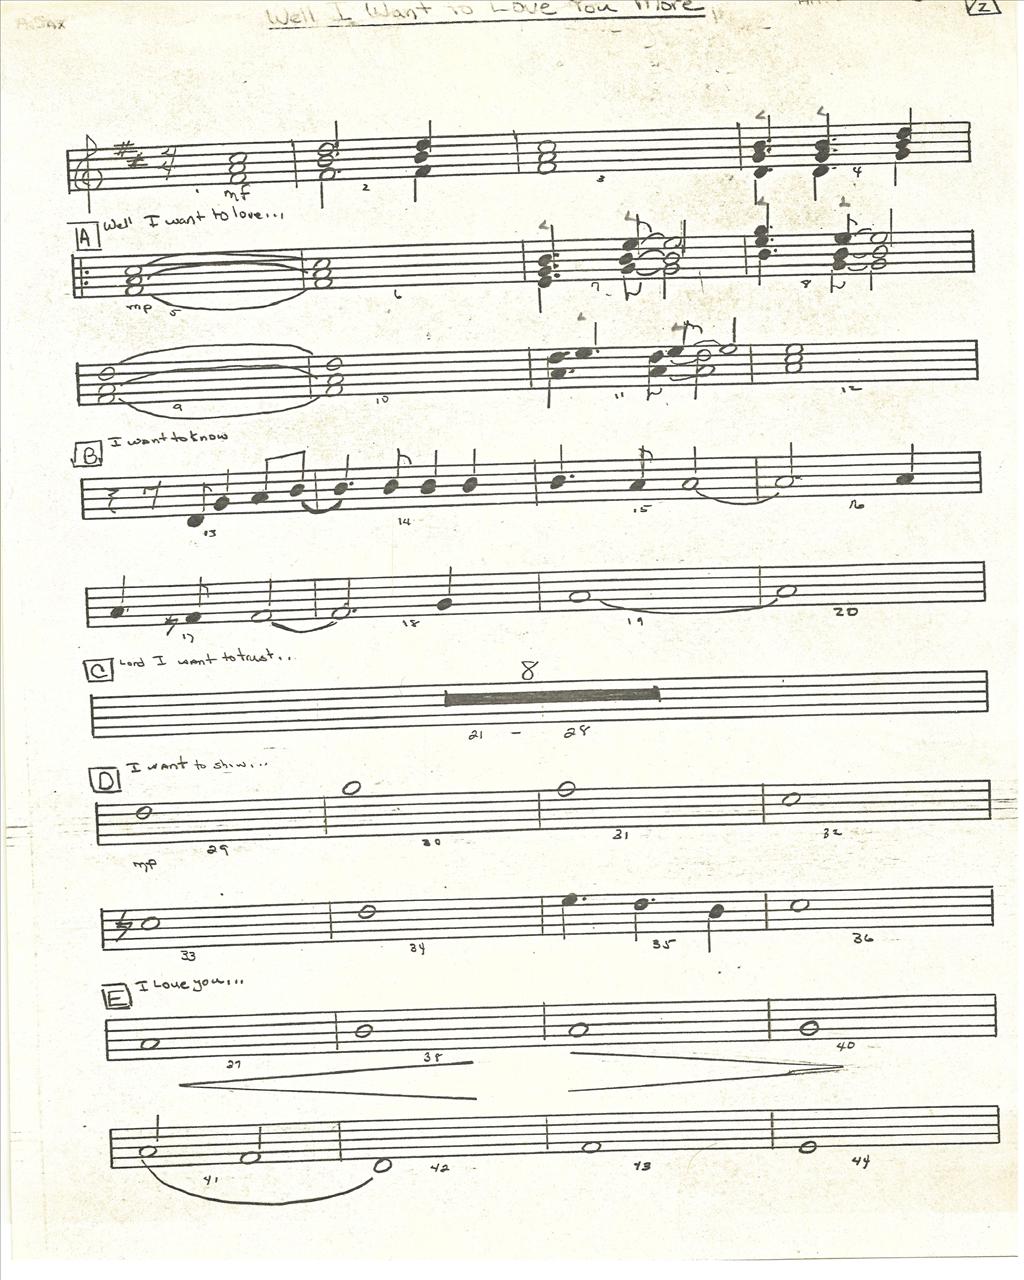 A. Sax
Well I Want to Love You More
2
4
4
mf
1 2 3 4
A Well I want to love...
mp 5 6 7 8
9 10 11 12
B I want to know
13 14 15 16
17 18 19 20
C Lord I want to trust...
8
21 - 28
D I want to show...
29 30 31 32
mp
33 34 35 36
E I Love you...
37 38 40
41 42 43 44